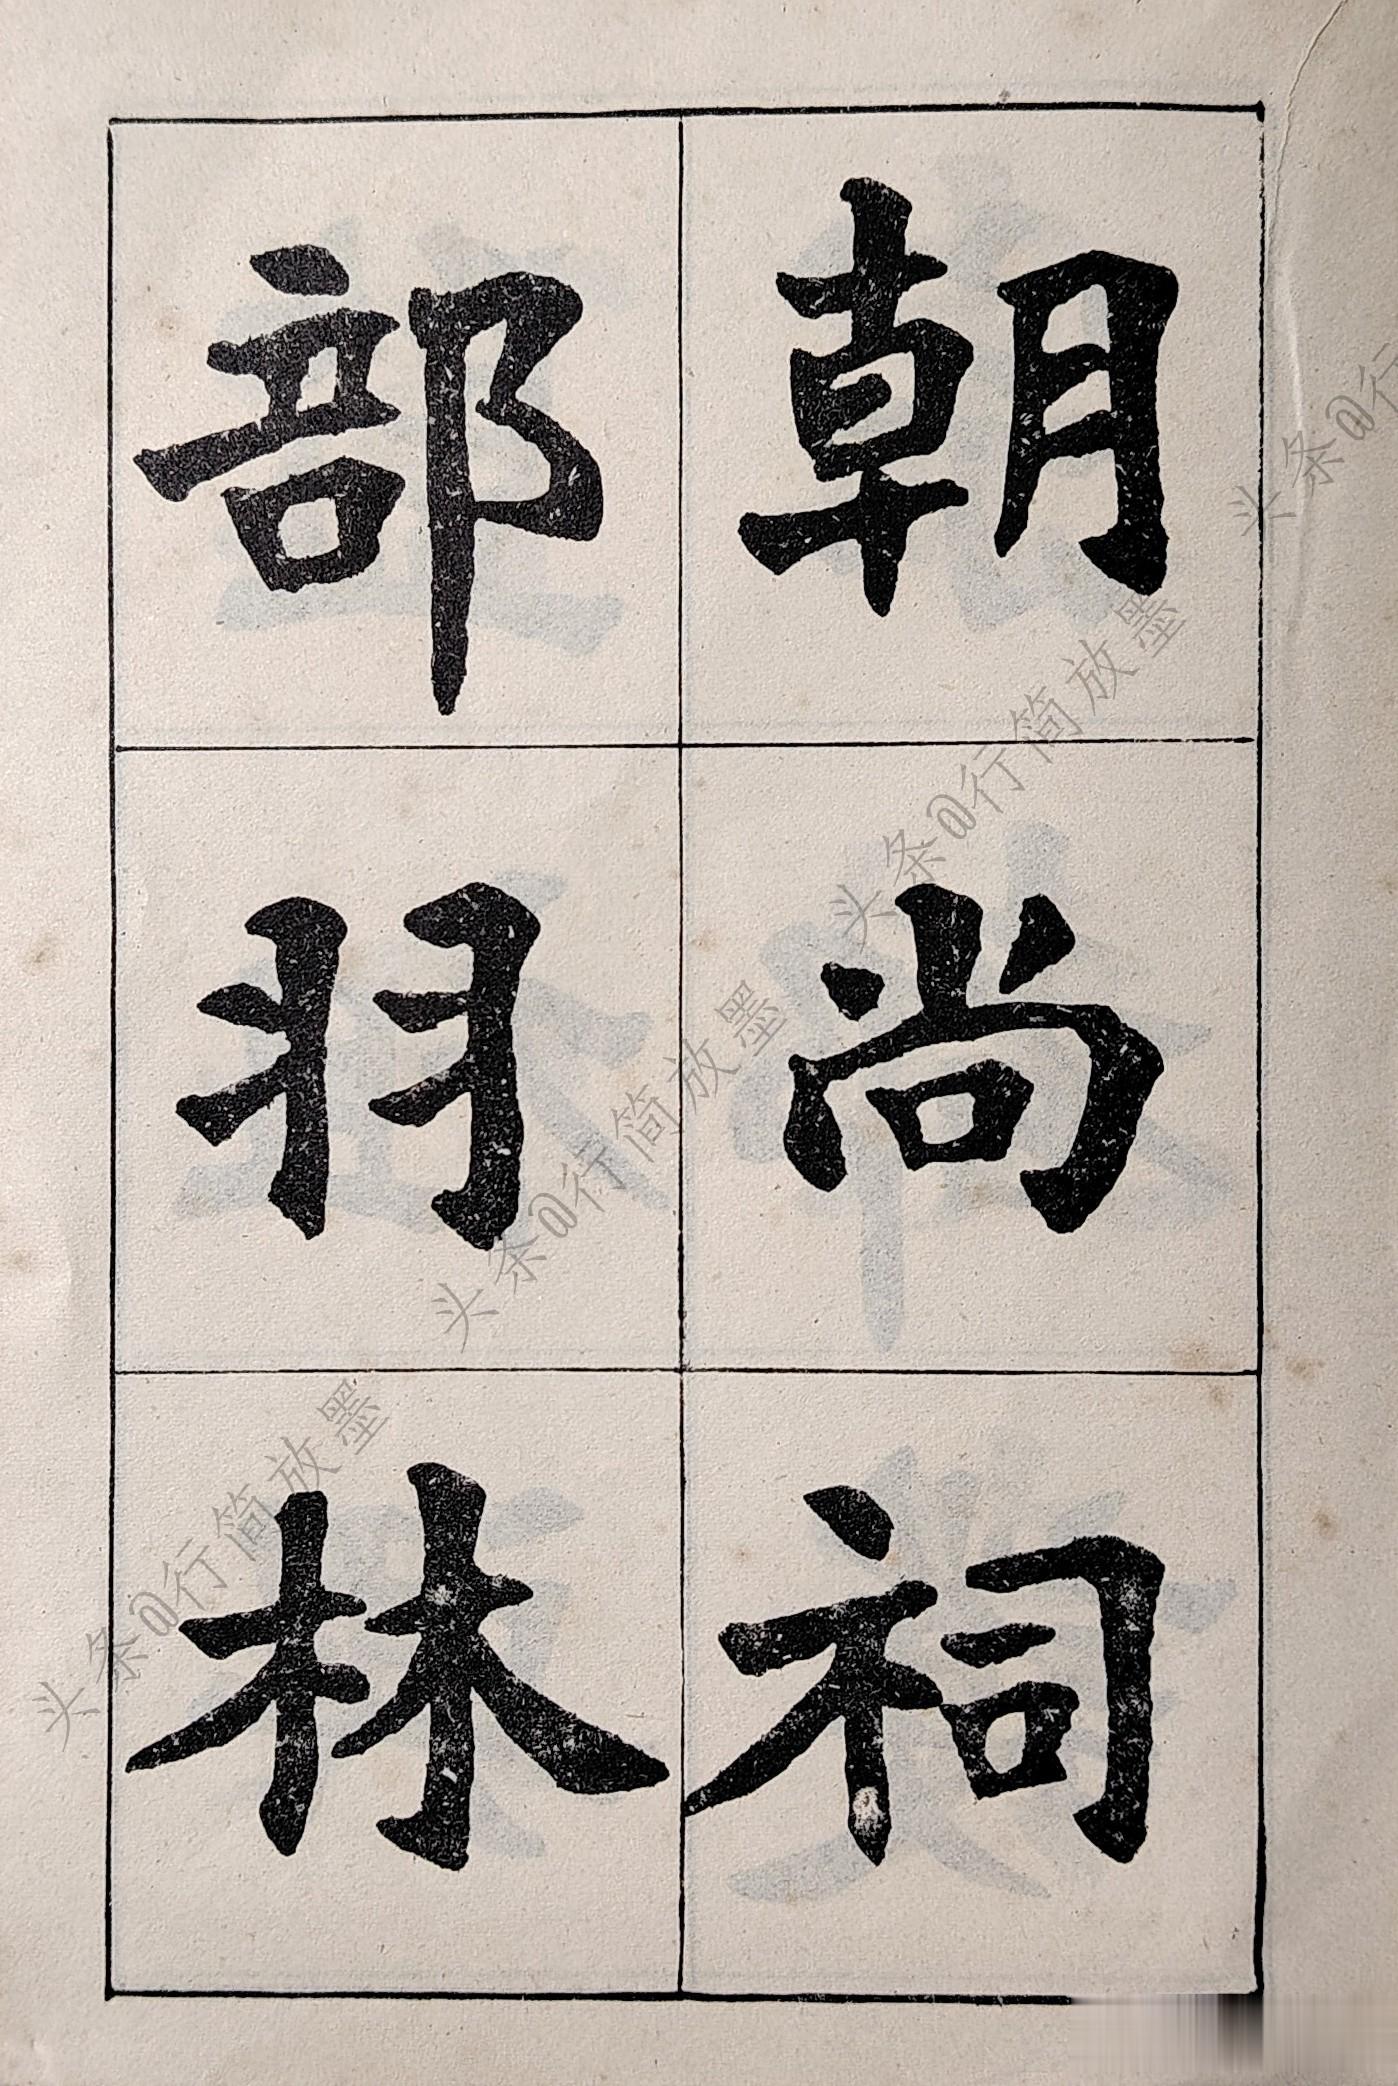 朝尚祠
部羽林
头条@行简放墨
头条@行简放墨
头条@行简放墨
头条@行